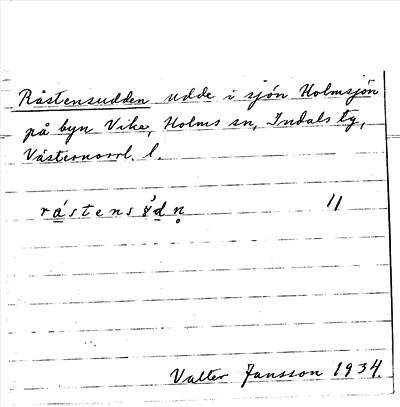 Råstensudden udde i sjön Holmsjön
på byn Vike, Holms sn, Indals tg,
Västernorrl. l.
råstensɤ́dn̥ 11
Valter Jansson 1934.